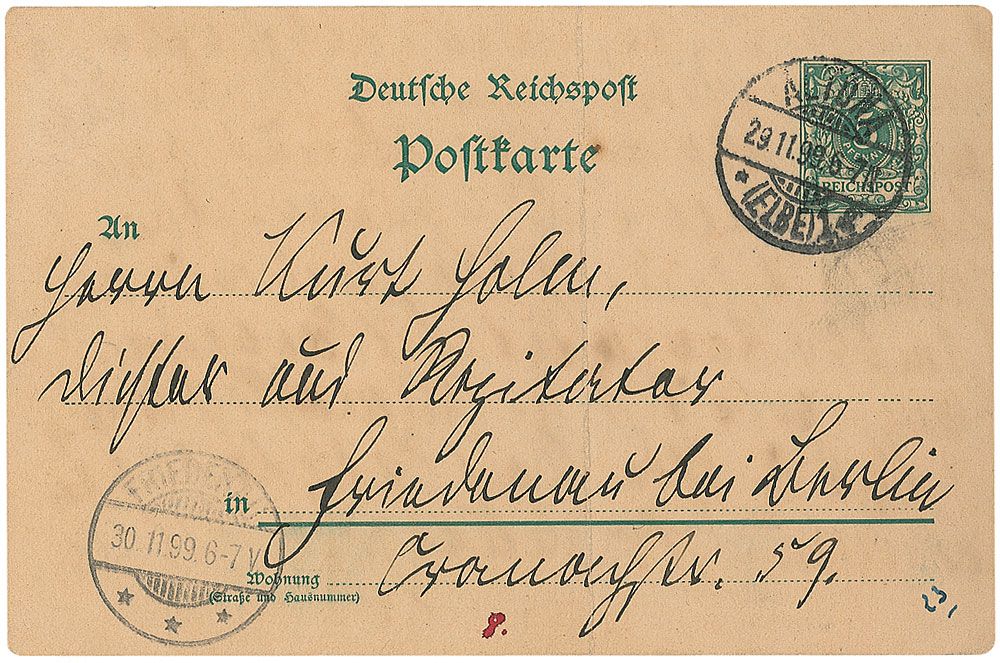 Deutsche Reichspost
Postkarte
ALTONA
29.11.99. 6-7N
* (ELBE) 1
REICHSPOST
An
Herrn Kurt Holm,
Dichter und Rezitator
in Friedenau bei Berlin
FRIEDENAU
30.11.99. 6-7V
Wohnung Cranachstr. 59.
(Straße und Hausnummer)
8.
23,